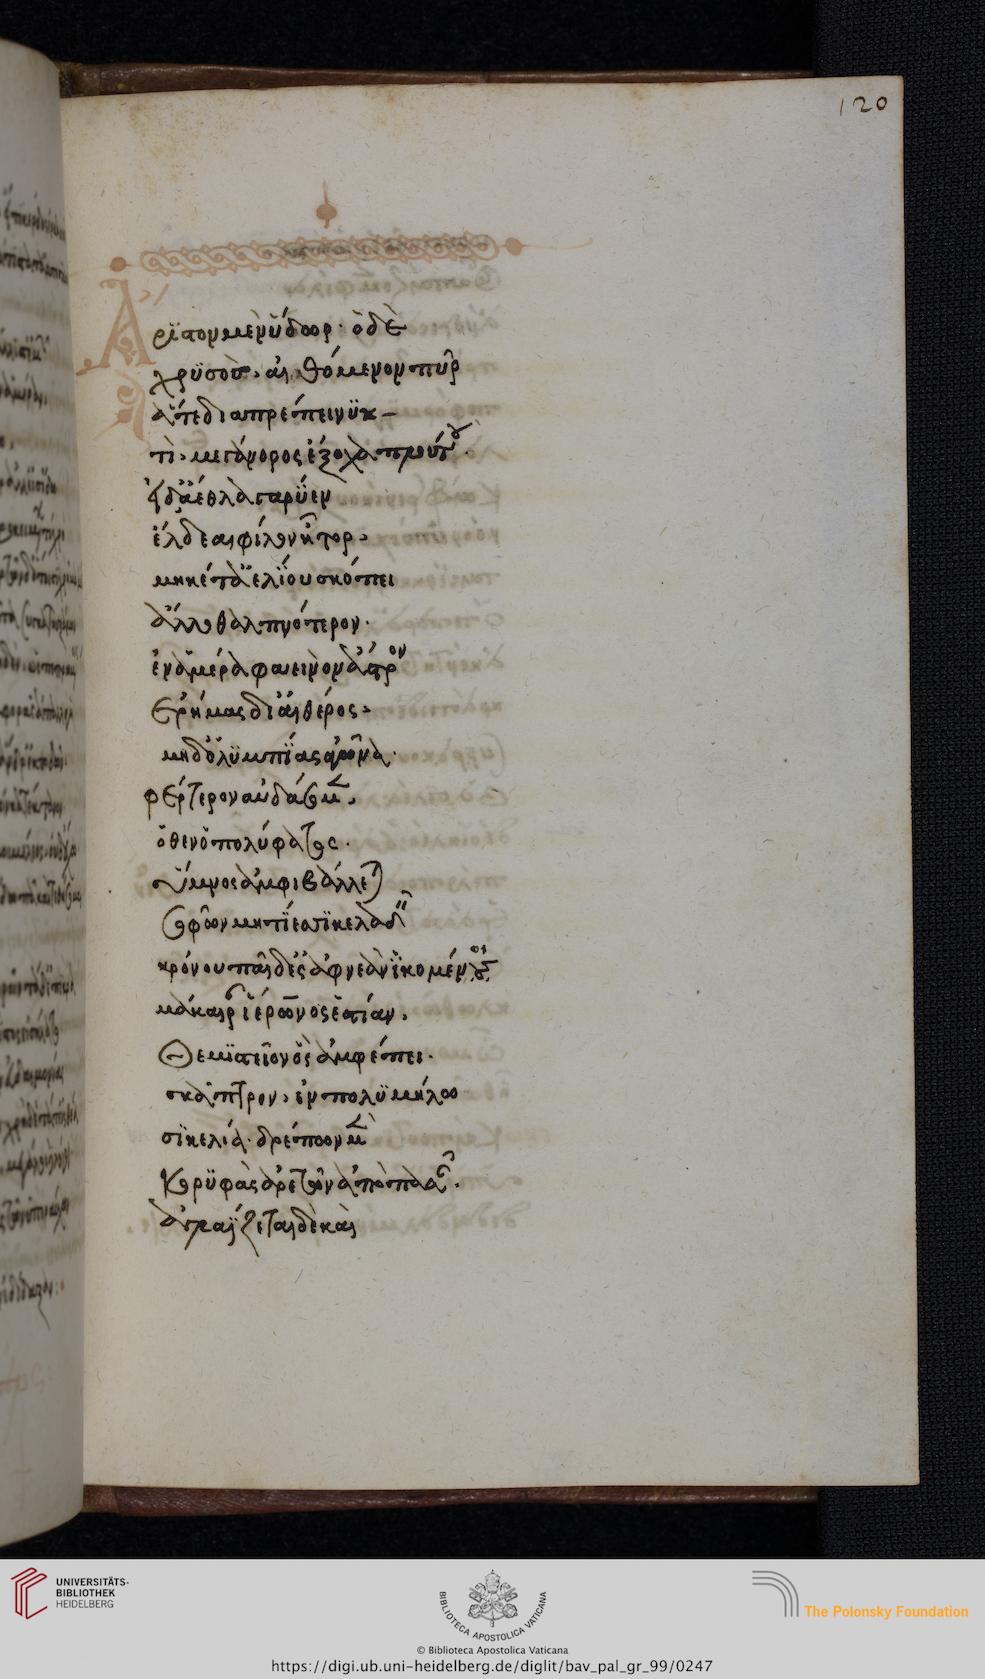 120
Ἄριστον μὲν ὕδωρ· ὁ δὲ
χρυσὸς, αἰθόμενον πῦρ
ἅτε διαπρέπει νυκ-
τὶ, μεγάνορος ἔξοχα πλούτου.
εἰ δ' ἄεθλα γαρύεν
ἔλδεαι φίλον ἦτορ,
μηκέθ' ἁελίου σκόπει
ἄλλο θαλπνότερον
ἐν ἁμέρᾳ φαεινὸν ἄστρον
ἐρήμας δι' αἰθέρος,
μηδ' ὀλυμπίας ἀγῶνα
φέρτερον αὐδάσομεν.
ὅθεν ὁ πολύφατος
ὕμνος ἀμφιβάλλεται
σοφῶν μητίεσσι κελαδεῖν
κρόνου παῖδ' ἐς ἀφνεὰν ἱκομένους
μάκαιραν ἱέρωνος ἑστίαν.
Θεμιστεῖον ὃς ἀμφέπει
σκᾶπτρον, ἐν πολυμήλῳ
σικελίᾳ· δρέπων μὲν
κορυφὰς ἀρετᾶν ἄπο πασᾶν.
ἀγλαΐζεται δὲ καὶ
UNIVERSITÄTS-
BIBLIOTHEK
HEIDELBERG
BIBLIOTECA APOSTOLICA VATICANA
© Biblioteca Apostolica Vaticana
The Polonsky Foundation
https://digi.ub.uni-heidelberg.de/diglit/bav_pal_gr_99/0247